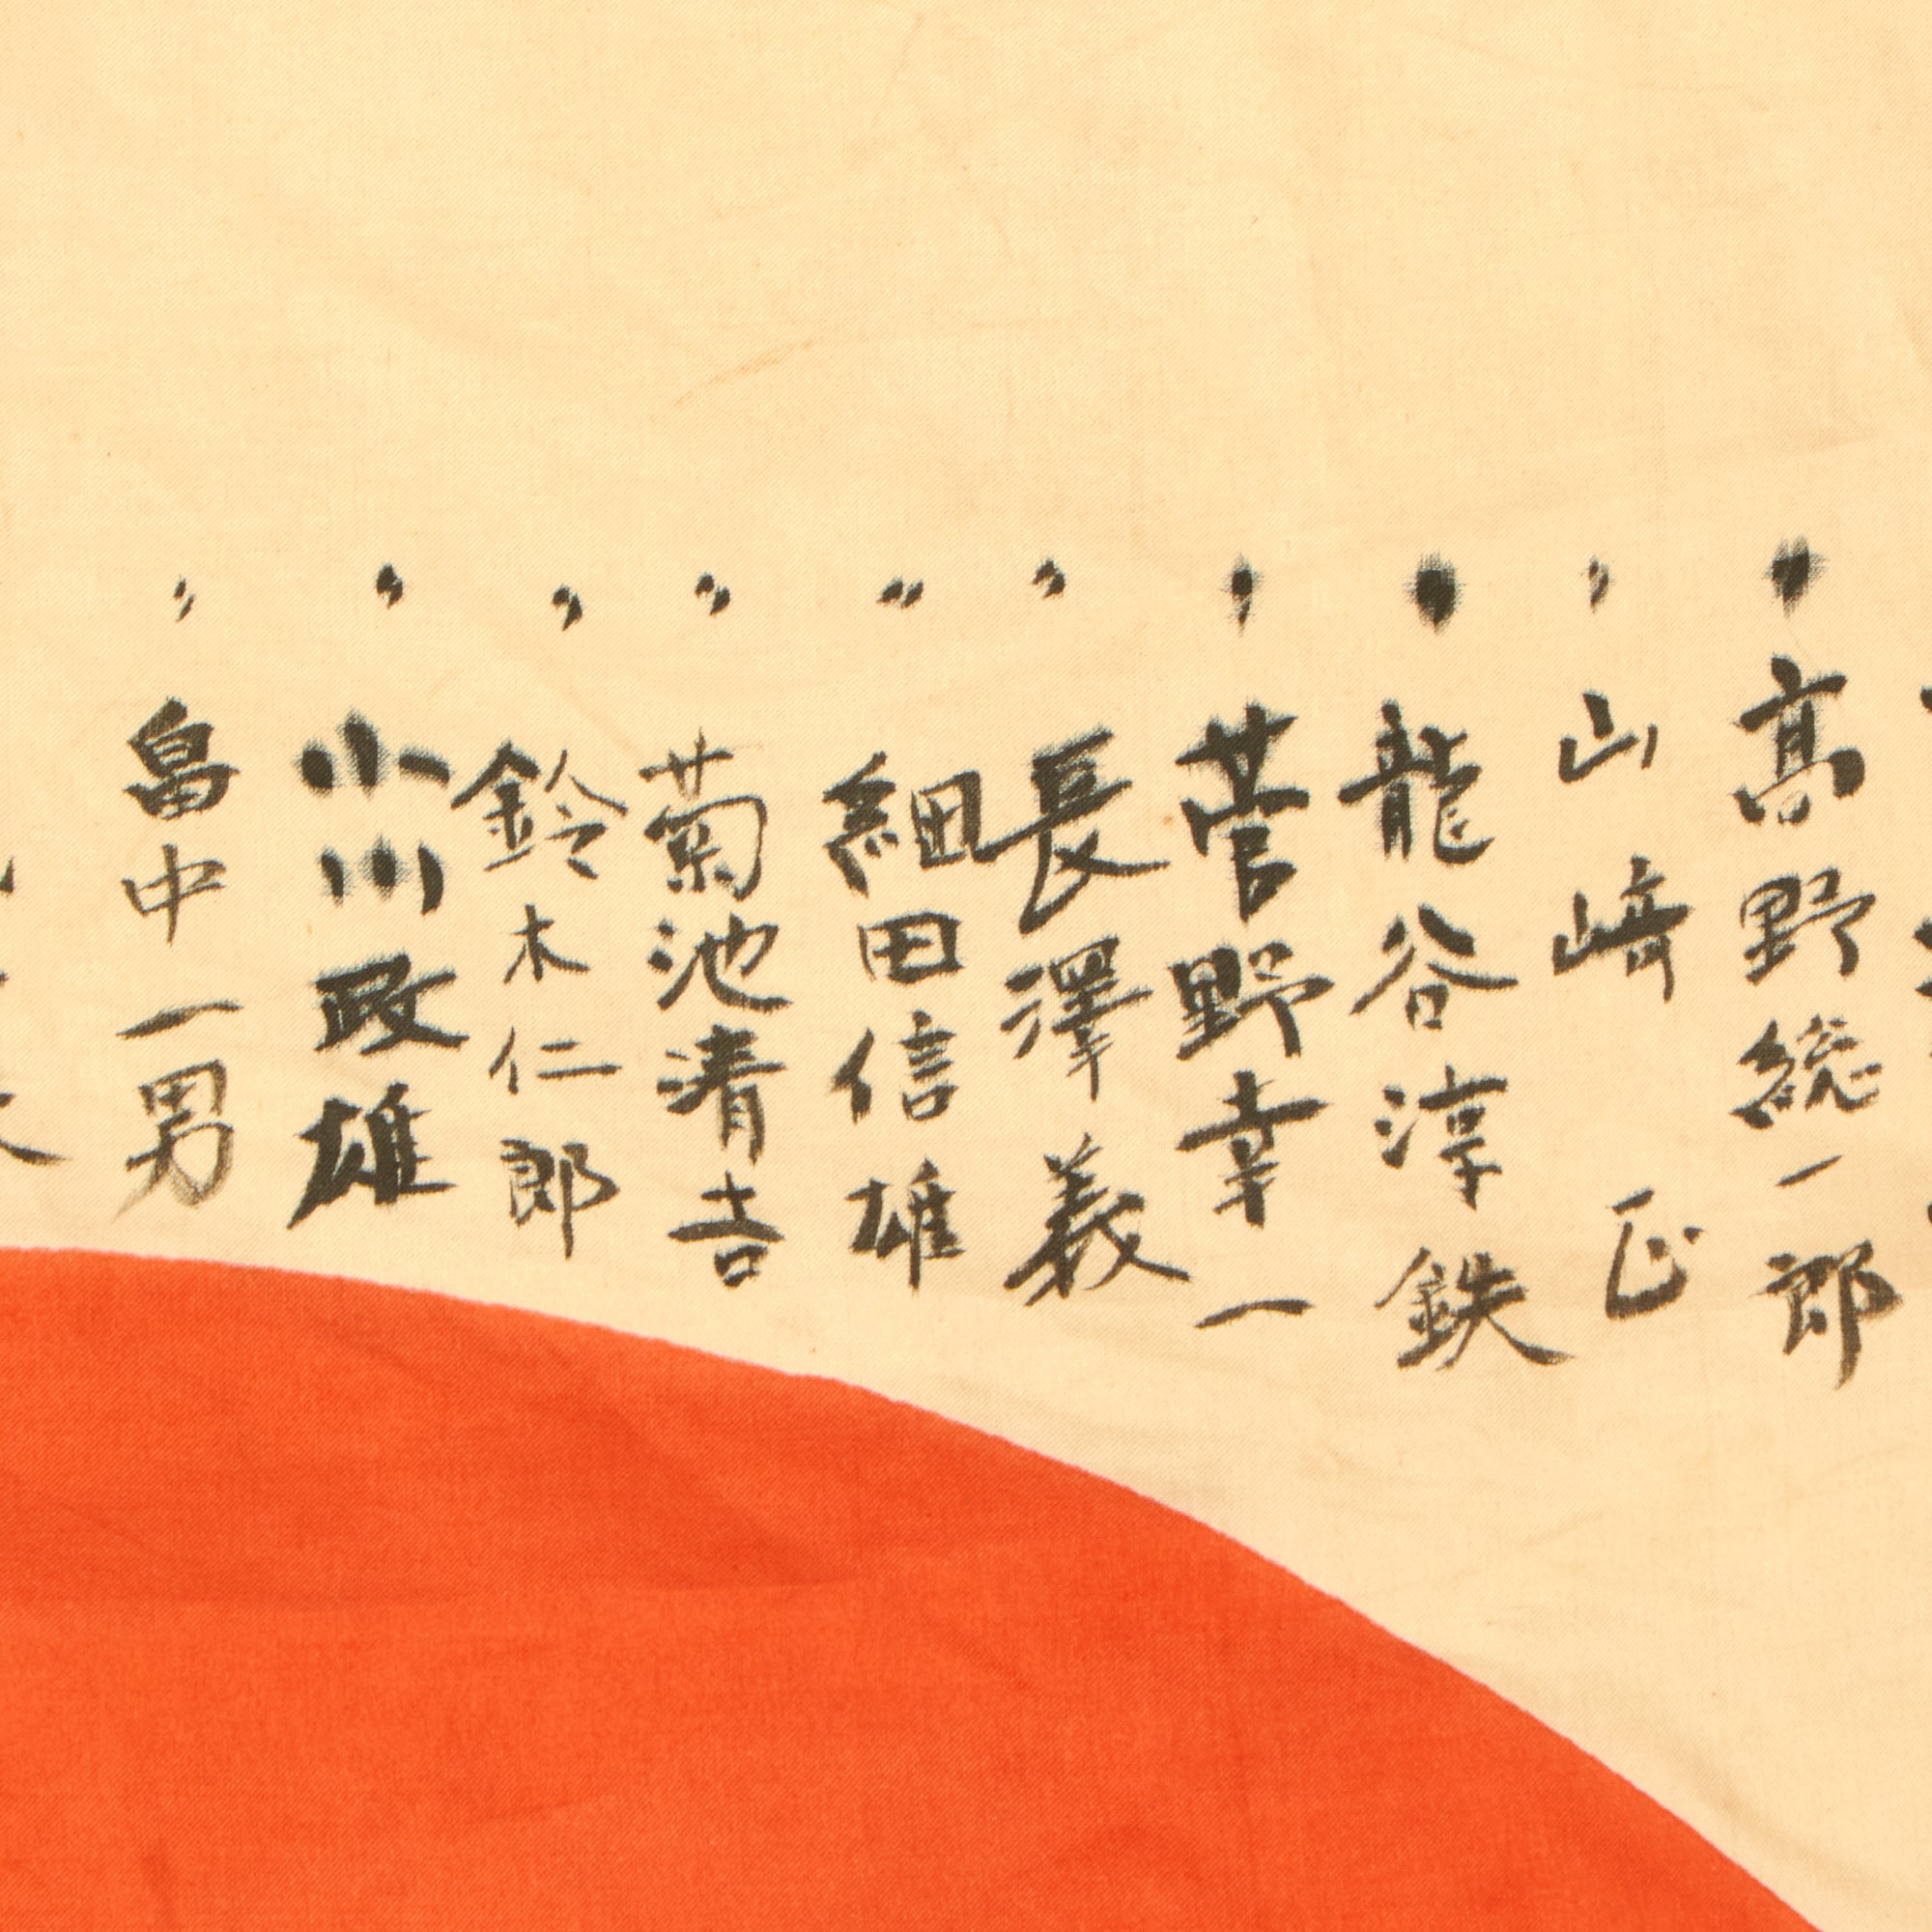 〃 高野総一郎
〃 山﨑正
〃 龍谷淳鉄
〃 菅野幸一
〃 長澤義
〃 細田信雄
〃 菊池清吉
〃 鈴木仁郎
〃 小川政雄
〃 畠中一男